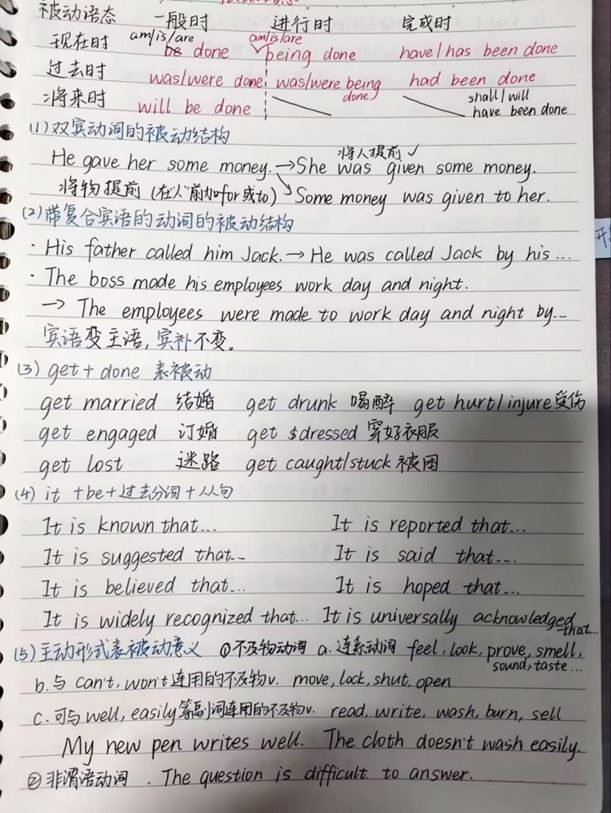 被动语态 一般时 进行时 完成时
现在时 am/is/are done am/is/are being done have/has been done
过去时 was/were done was/were being done had been done
将来时 will be done shall/will have been done
(1) 双宾动词的被动结构
He gave her some money. → She was given some money. 将人提前 ✓
将物提前 (在人前加for或to) Some money was given to her.
(2) 带复合宾语的动词的被动结构
· His father called him Jack. → He was called Jack by his ...
· The boss made his employees work day and night.
→ The employees were made to work day and night by...
宾语变主语, 宾补不变。
(3) get + done 表被动
get married 结婚 get drunk 喝醉 get hurt/injure受伤
get engaged 订婚 get dressed 穿好衣服
get lost 迷路 get caught/stuck 被困
(4) it + be + 过去分词 + 从句
It is known that... It is reported that...
It is suggested that... It is said that....
It is believed that... It is hoped that...
It is widely recognized that... It is universally acknowledged that...
(5) 主动形式表被动意义 ①不及物动词 a. 连系动词 feel, look, prove, smell, sound, taste...
b. 与 can't, won't 连用的不及物v. move, lock, shut, open
c. 可与 well, easily等副词连用的不及物v. read, write, wash, burn, sell
My new pen writes well. The cloth doesn't wash easily.
②非谓语动词. The question is difficult to answer.